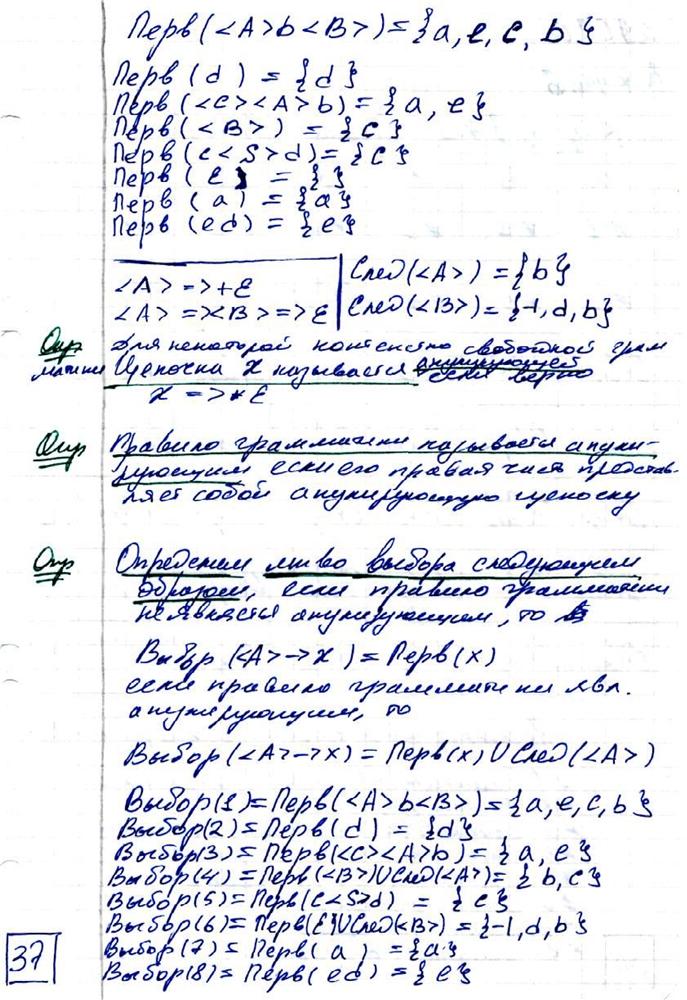 Перв(<A>b<B>)={a,e,c,b}
Перв(d) = {d}
Перв(<C><A>b)={a,e}
Перв(<B>) = {c}
Перв(c<S>d)={c}
Перв(ε) = { }
Перв(a) = {a}
Перв(ed) = {e}
<A> =>+ε
<A> =><B>=>ε
След(<A>) = {b}
След(<B>)={⊣,d,b}
Опр Для некоторой контекстно свободной грам
матики Цепочка x называется анулирующей если верно
x =>*ε
Опр Правило грамматики называется анули-
рующим если его правая часть представ-
ляет собой анулирующую цепочку
Опр Определим мн-во выбора следующим
образом, если правило грамматики
не является анулирующим, то
Выбор(<A>->x)=Перв(x)
если правило грамматики явл.
анулирующим, то
Выбор(<A>->x)=Перв(x)UСлед(<A>)
Выбор(1)=Перв(<A>b<B>)={a,e,c,b}
Выбор(2)=Перв(d) = {d}
Выбор(3)=Перв(<C><A>b)={a,e}
Выбор(4)=Перв(<B>)UСлед(<A>)={b,c}
Выбор(5)=Перв(c<S>d) = {c}
Выбор(6)= Перв(ε)UСлед(<B>)={⊣,d,b}
Выбор(7)= Перв(a) ={a}
Выбор(8)= Перв(ed)={e}
37